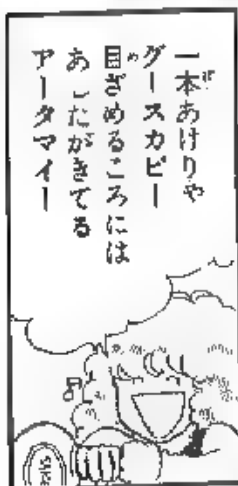 一本あけりや
グースカピー
目ざめるころには
あしたがきてる
アータマイー